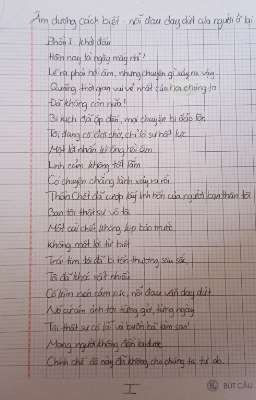 Âm dương cách biệt - nỗi đau day dứt của người ở lại
Phần 1: khởi đầu
Hôm nay là ngày mấy nhỉ?
Lẽ ra phải hồi âm, nhưng chuyện gì xảy ra vậy
Quãng thời gian vui vẻ nhất của hai chúng ta
Đã không còn nữa!
Bi kịch đã ập đến, mọi chuyện bị đảo lộn
Tôi đang cố đợi chờ, chỉ là sự bất lực
Một lời nhắn không hồi âm
Linh cảm không tốt lắm
Có chuyện chẳng lành xảy ra rồi
Thần Chết đã cướp lấy linh hồn của người bạn thân tôi
Bạn tôi thật sự vô tội
Một cái chết không kịp báo trước
Không một lời từ biệt
Trái tim tôi đã bị tổn thương sâu sắc
Tôi đã khóc rất nhiều
Cố kìm nén cảm xúc, nỗi đau vẫn day dứt
Nó cứ ám ảnh tôi từng giờ, từng ngày
Tôi thật sự có lỗi và buồn bã làm sao!
Mạng người không đền lại được
Chính chế độ này đã không cho chúng ta tự do.
I
BÚT CẦU